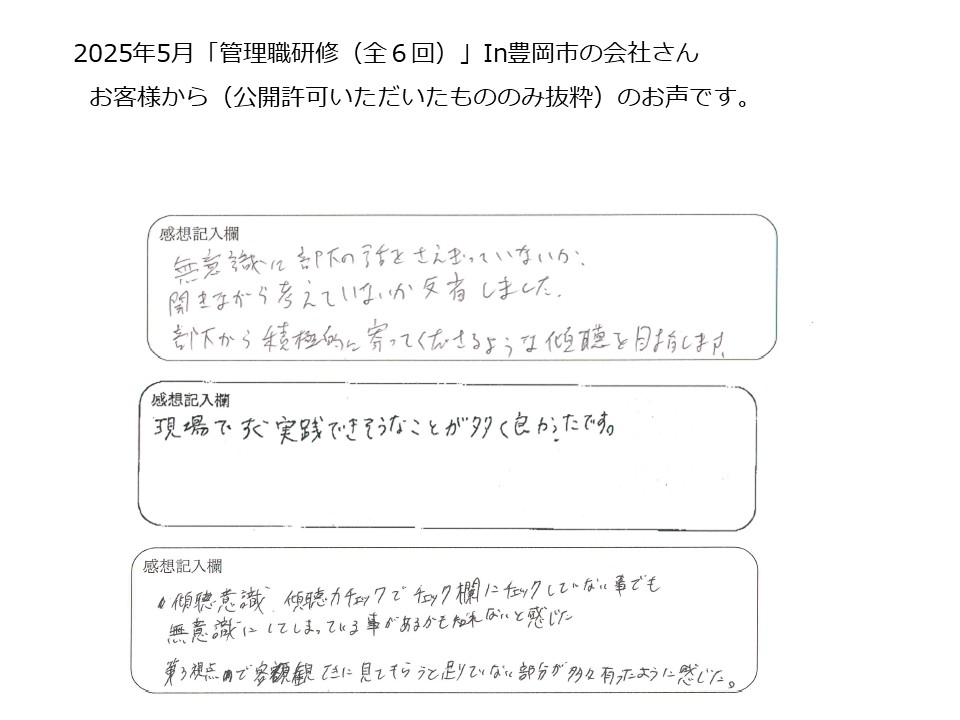 2025年5月「管理職研修（全６回）」In豊岡市の会社さん
お客様から（公開許可いただいたもののみ抜粋）のお声です。
感想記入欄
無意識に部下の話をさえぎっていないか、
聞きながら考えていないか反省しました。
部下から積極的に寄ってくださるような傾聴を目指します
感想記入欄
現場ですぐ実践できそうなことが多く良かったです。
感想記入欄
傾聴意識、傾聴力チェックでチェック欄にチェックしていない事でも
無意識にしてしまっている事があるかも知れないと感じた
第3視点で客観てきに見てもらうと足りていない部分が多々有ったように感じた。